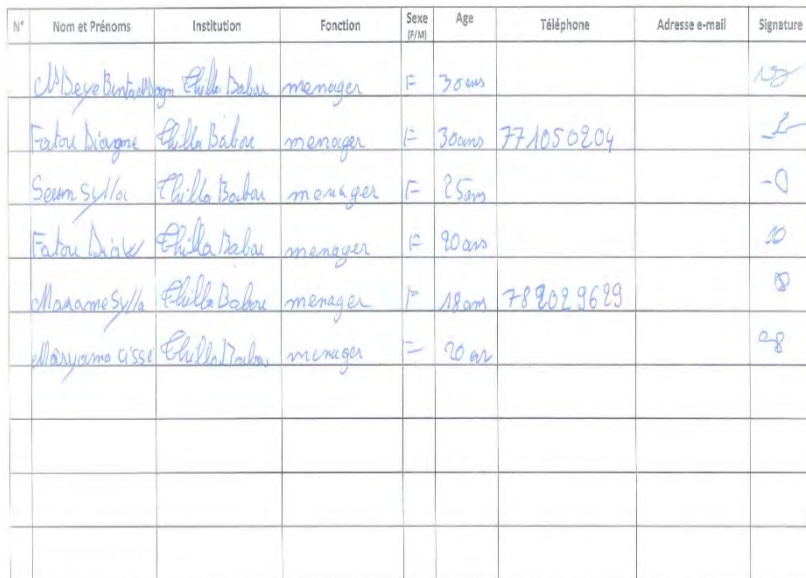 N° Nom et Prénoms Institution Fonction Sexe (F/M) Age Téléphone Adresse e-mail Signature
Thilla Babou menager F 30 ans
Fatou Diagne Thilla Babou menager F 30ans 771050204
Seum Sylla Thilla Babou menager F 25ans
Fatou Thilla Babou menager F 20 ans
Marame Sylla Thilla Babou menager F 18 ans 782029629
Maryama cisse Thilla Babou menager F 20 an